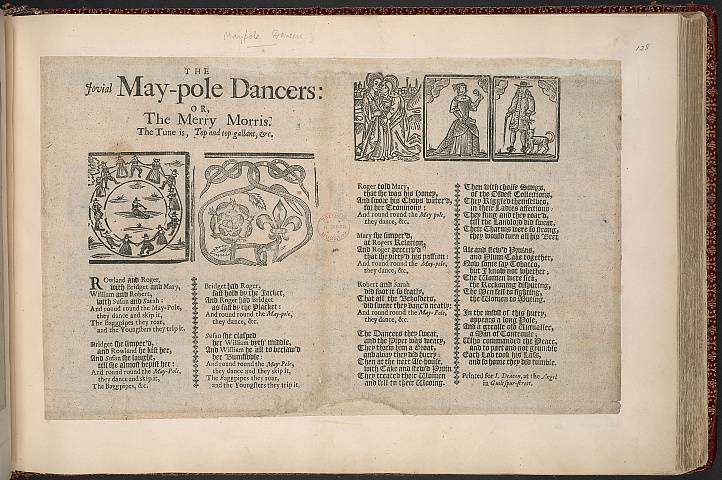 Maypole Dancers
128
THE
Jovial May-pole Dancers:
OR,
The Merry Morris.
The Tune is, Top and top gallant, &c.
Rowland and Roger,
with Bridget and Mary,
William and Robert,
with Susan and Sarah:
And round round the May-Pole,
they dance and skip it,
The Baggpipes they roar,
and the Youngsters they trip it.
Bridget she simper'd,
and Rowland he kist her,
And Susan she laught,
till she almost bepist her:
And round round the May-Pole,
they dance and skip it,
The Baggpipes, &c.
Bridget had Roger,
fast hold by the Jacket,
And Roger had Bridget
as fast by the Placket:
And round round the May-pole,
they dance, &c.
Susan she claspt
her William byth' middle,
And William he all to beclaw'd
her Bumfiddle:
And round round the May-Pole,
they dance and they skip it,
The Baggpipes they roar,
and the Youngsters they trip it.
Roger told Mary,
that she was his Honey,
And swore his Chops water'd,
for her Cconnony:
And round round the May pole,
they dance, &c.
Mary she simper'd,
at Rogers Relation,
And Roger perceiv'd
that she pitty'd his passion:
And round round the May-pole,
they dance, &c.
Robert and Sarah
did foot it so featly,
That all the Beholders,
did swear they danc'd neatly:
And round round the May-Pole,
they dance, &c.
The Dancers they sweat,
and the Piper was weary,
They threw him a Groat,
and away they did hurry:
Then at the next Ale-house,
with Cake and stew'd Pruin
They treated their Women
and fell to their Wooing.
Then with choise Songs,
of the Oldest Collections,
They Riggled themselves,
in their Ladies affections:
They sung and they roar'd,
till the Landlord did swear,
Their Charms were so strong,
they would turn all his Beer.
Ale and stew'd Pruins,
and Plum Cake together,
Now some say Tobacco,
but I know not whether;
The Women were sick,
the Reckoning disputing,
The Men fell to fighting,
the Women to
In the midst of this hurry,
appears a long Pole,
And a greasie old
a Man of Controule:
Who commanded the Peace,
and to part and not grumble
Each Lad took his Lass,
and so home they did tumble.
Printed for J. Deacon, at the Angel
in Guiltspur-street.